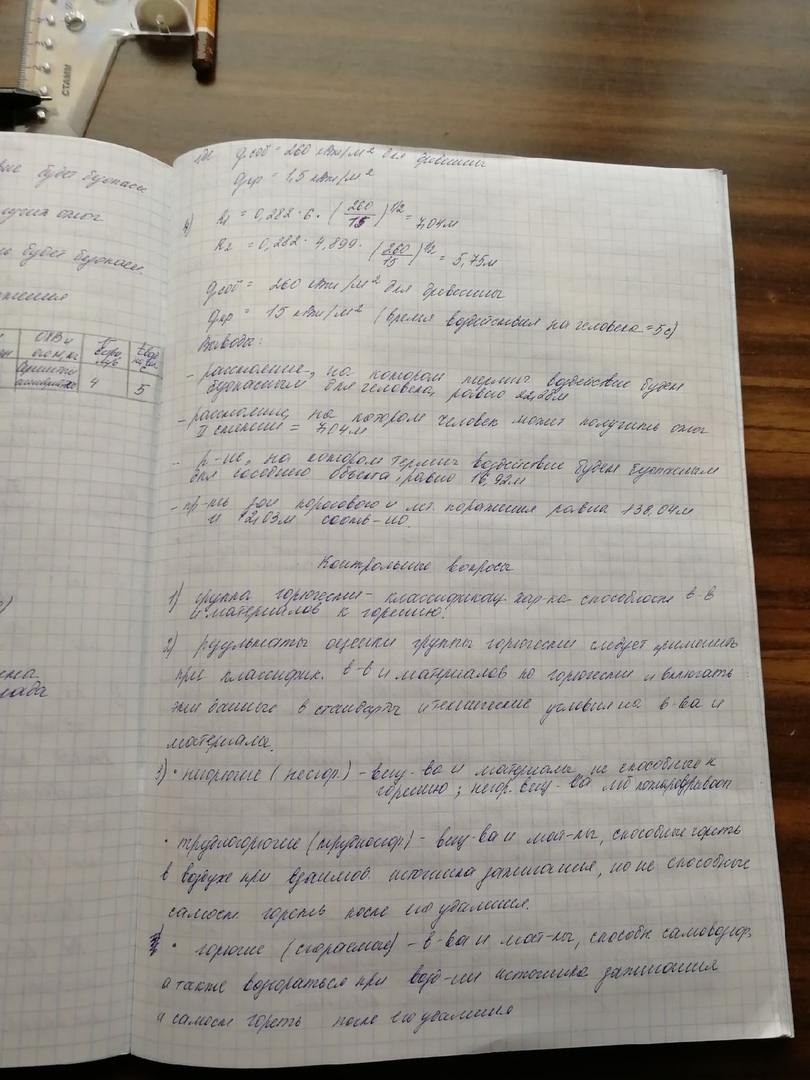 СТАММ
будет безопасн.
ожог
будет безопасн.
4
5
где qсоб = 260 кВт/м² для древесины
qкр = 1,5 кВт/м²
4) R₁ = 0,282 · 6 · (260/15)^1/2 = 7,04м
R₂ = 0,282 · 4,899 · (260/15)^1/2 = 5,75м
qсоб = 260 кВт/м² для древесины
qкр = 15 кВт/м² (время воздействия на человека = 5с)
Выводы:
- расстояние, на котором теплов. воздействие будет
безопасным для человека, равно 22,26м
- расстояние, на котором человек может получить ожог
II степени = 7,04м
- р-ие, на котором термич. воздействие будет безопасным
для соседнего объекта, равно 16,92м
порогового и поражения равна 138,04м
и 12,03м соотв-но.
Контрольные вопросы
1) группа горючести - классификац. хар-ка способности в-в
и материалов к горению.
2) результаты оценки группы горючести следует применять
при классифик. в-в и материалов по горючести и включать
эти данные в стандарты и технические условия на в-ва и
материалы.
3) • негорючие (несгор.) - вещ-ва и материалы, не способные к
горению; негор. вещ-ва мб пожаровзрывооп
• трудногорючие (трудносгор.) - вещ-ва и мат-лы, способные гореть
в воздухе при взаимов. источника зажигания, но не способные
самост. гореть после его удаления.
• горючие (сгораемые) - в-ва и мат-лы, способн. самовозгор.,
а также возгораться при возд-ии источника зажигания
и самост гореть после его удаления